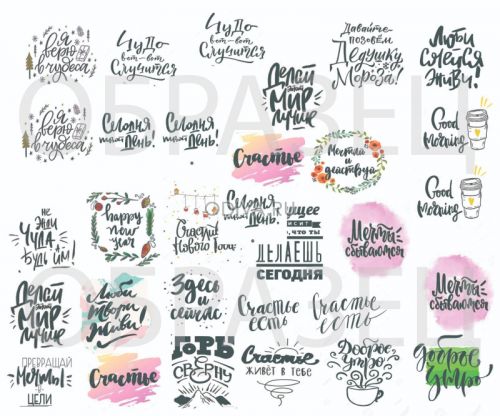 я
верю
в чудеса
Чудо
вот-вот
Случится
Чудо
вот-вот
Случится
Давайте
позовём
Дедушку
Мороза!
Люби
Смейся
Живи!
я
верю
в чудеса
Сегодня
твой День!
Сегодня
твой День!
Делай
этот
Мир
лучше
Good
Morning
Счастье
Мечтай
и
действуй
Good
Morning
не Жди
Чуда,
Будь им!
happy
new
year
Счастья
Нового Года
Сегодня
твой День!
ущее
исит
что ты
ДЕЛАЕШЬ
СЕГОДНЯ
Мечты
сбываются
Делай
этот
Мир
лучше
Люби
твори
Живи!
Здесь
и
сейчас
Счастье
есть
Счастье
есть
Мечты
сбываются
ПРЕВРАЩАЙ
Мечты
в ЦЕЛИ
Счастье
Счастье
ЖИВЁТ В ТЕБЕ
Доброе
утро
Доброе
утро
ОБРАЗЕЦ
ОБРАЗЕЦ